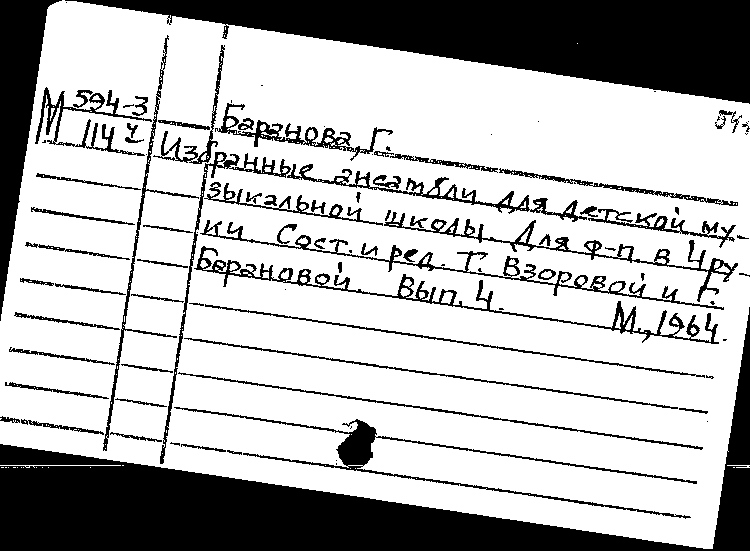 М 594-3
М 114
Баранова, Г.
Избранные ансамбли для детской му-
зыкальной школы. Для ф-п. в 4 ру-
ки. Сост. и ред. Т. Взоровой и Г.
Барановой. Вып. 4. М., 1964.